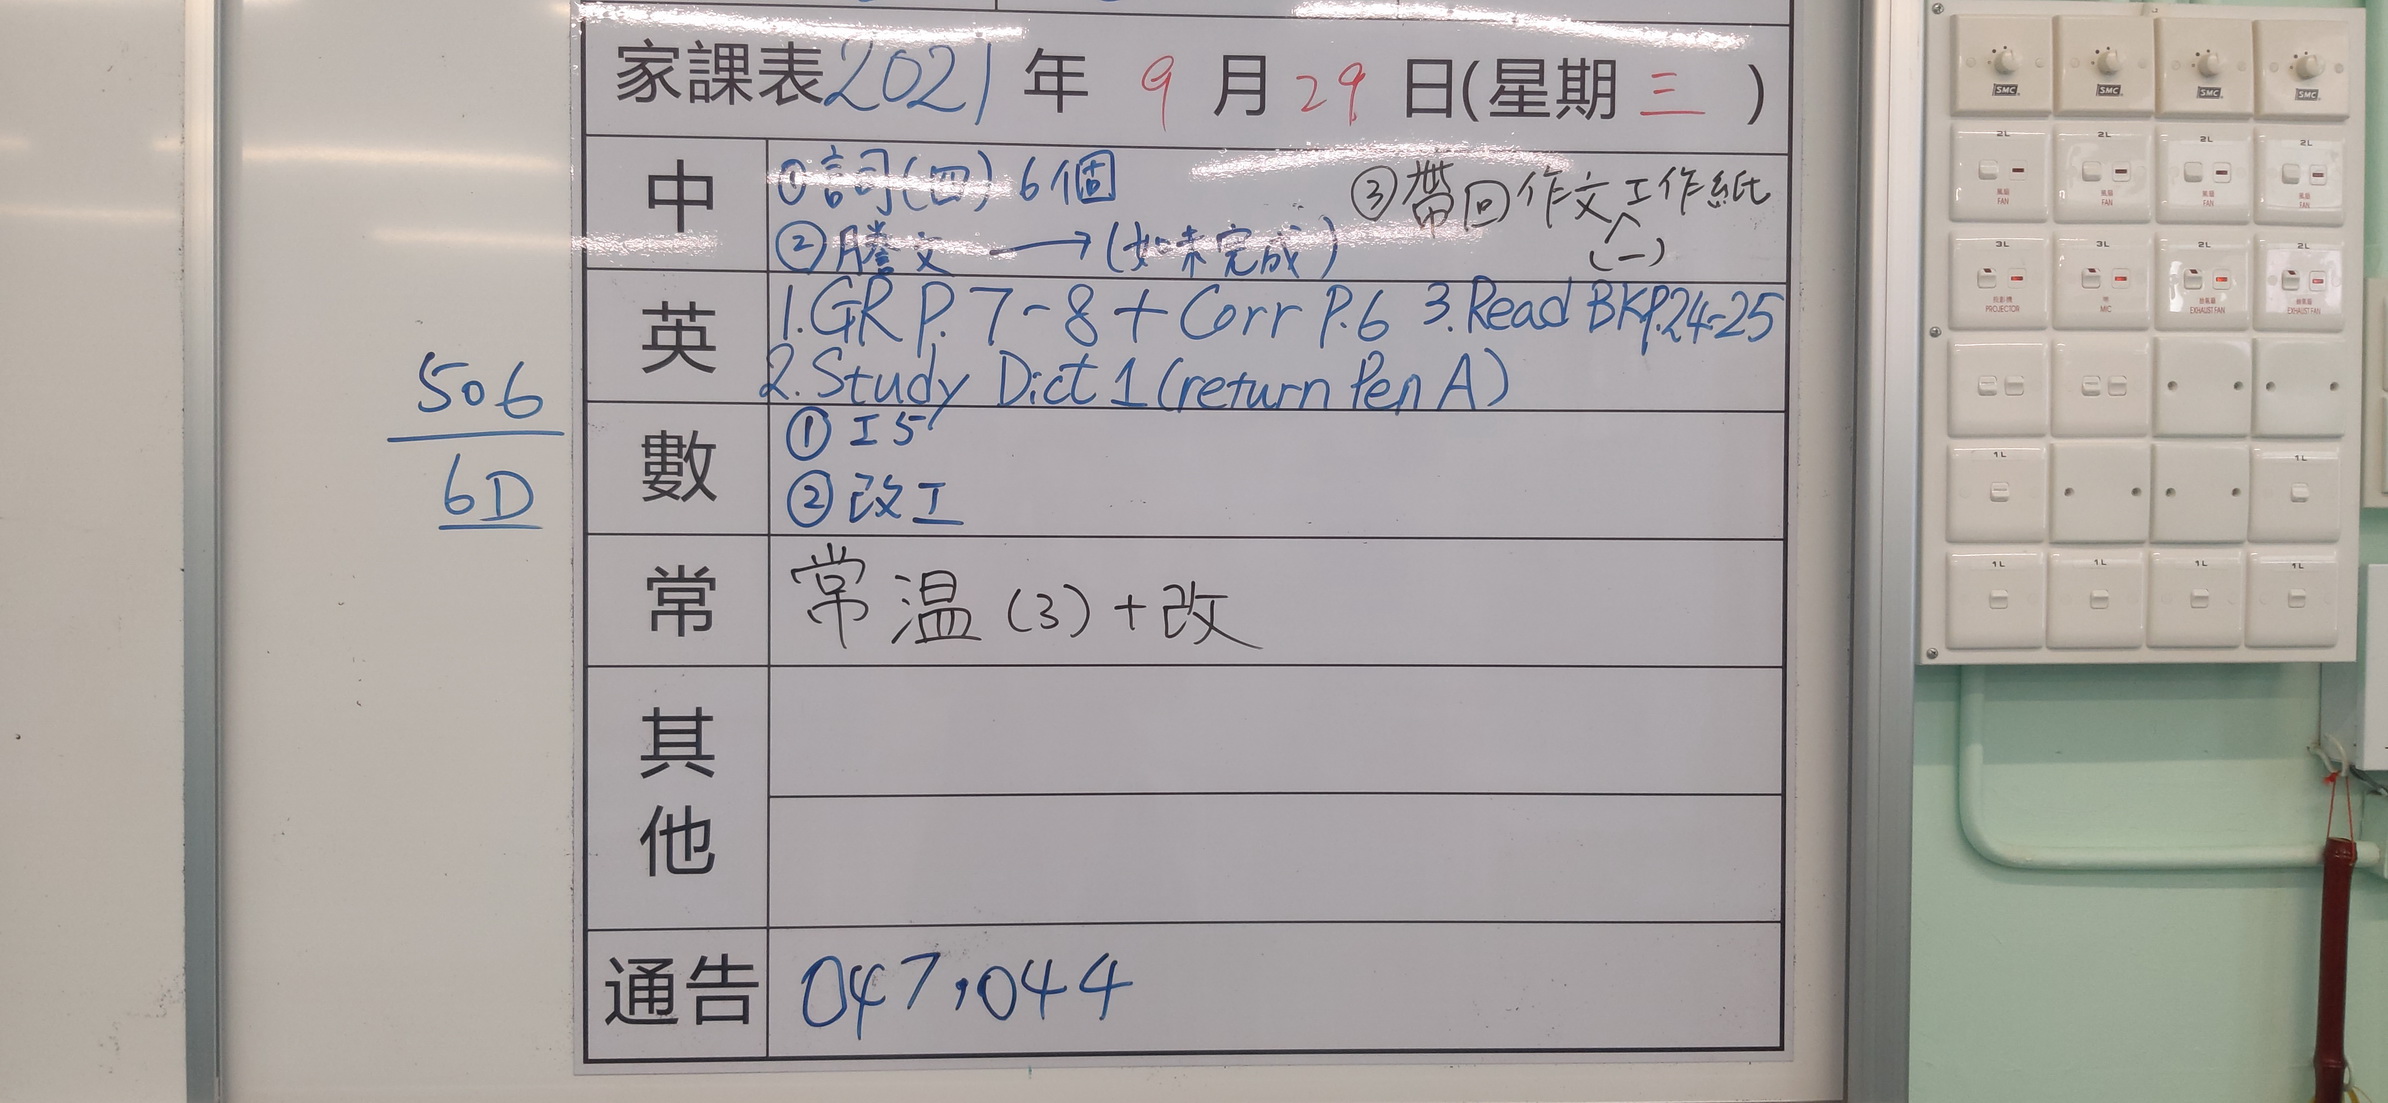 家課表2021年 9月29日(星期三)
中
①詞(四)6個
③帶回作文(一)工作紙
②謄文→(如未完成)
英
1.GR P.7-8+Corr P.6 3.Read BKP.24-25
2.Study Dict 1(return Pen A)
數
①工5
②改工
506
6D
常
常温(3)+改
其他
通告
047,044
SMC SMC SMC SMC
2L 2L 2L 2L
風扇 風扇 風扇 風扇
FAN FAN FAN FAN
3L 3L 2L 2L
投影機 咪 抽氣扇 抽氣扇
PROJECTOR MIC EXHAUST FAN EXHAUST FAN
1L 1L
1L 1L 1L 1L